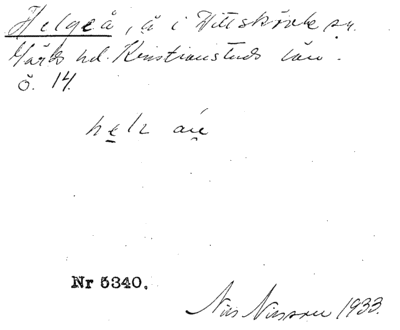 Helgeå, å i Vittskövle sn.
Gärds hd. Kristianstads län.
ö. 14.
helz án
Nr 5340.
Nils Nilsson 1933.